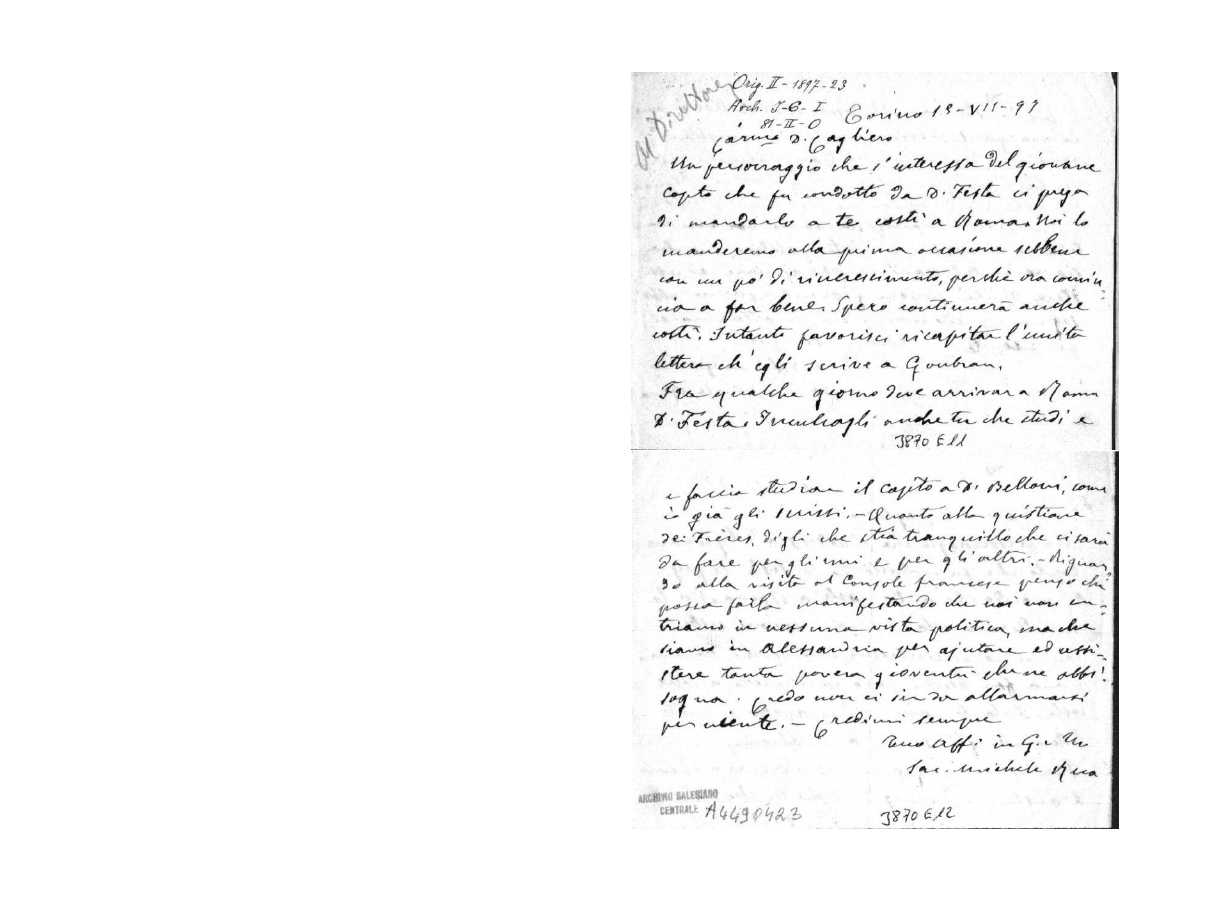 Al Direttore
Orig. II - 1897-23
Arch. I-G-I
81-II-O
Torino 13-VII-97
Carmo D. Cagliero
Un personaggio che s'interessa del giovane
copto che fu condotto da D. Festa ci prega
di mandarlo a te costì a Roma. Noi lo
manderemo alla prima occasione sebbene
con un po' di rincrescimento, perchè ora comin-
cia a far bene. Spero continuerà anche
costì. Intanto favorisci ricapitar l'unita
lettera ch'egli scrive a Goubran.
Fra qualche giorno deve arrivar a Roma
D. Festa. Inculcagli anche tu che studi e
J870 E11
e faccia studiare il copto a D. Belloni, come
io già gli scrissi. - Quanto alla quistione
dei Frères, digli che stia tranquillo che ci sarà
da fare per gli uni e per gli altri. - Riguar
do alla visita al Console francese penso che
possa farla manifestando che noi non en-
triamo in nessuna vista politica, ma che
siamo in Alessandria per ajutare ed assi-
stere tanta povera gioventù che ne abbi-
sogna. Credo non ci sia da allarmarsi
per niente. - Credimi sempre
Tuo Aff in G. e M
Sac. Michele Rua
ARCHIVIO SALESIANO
CENTRALE
A4490423
J870 E12